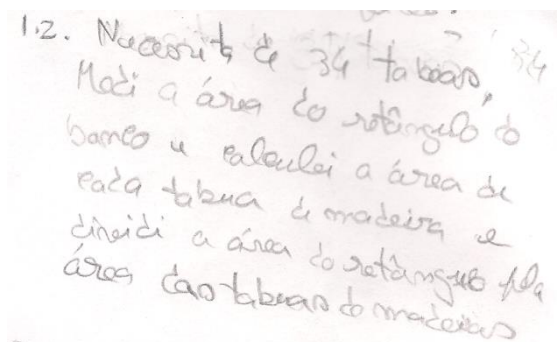 1.2. Necesit de 34 taboas,
Medi a área do retângulo do
banco e calculei a área de
cada tabua de madeira e
dividi a área do retângulo pla
área das tabuas do madeiras